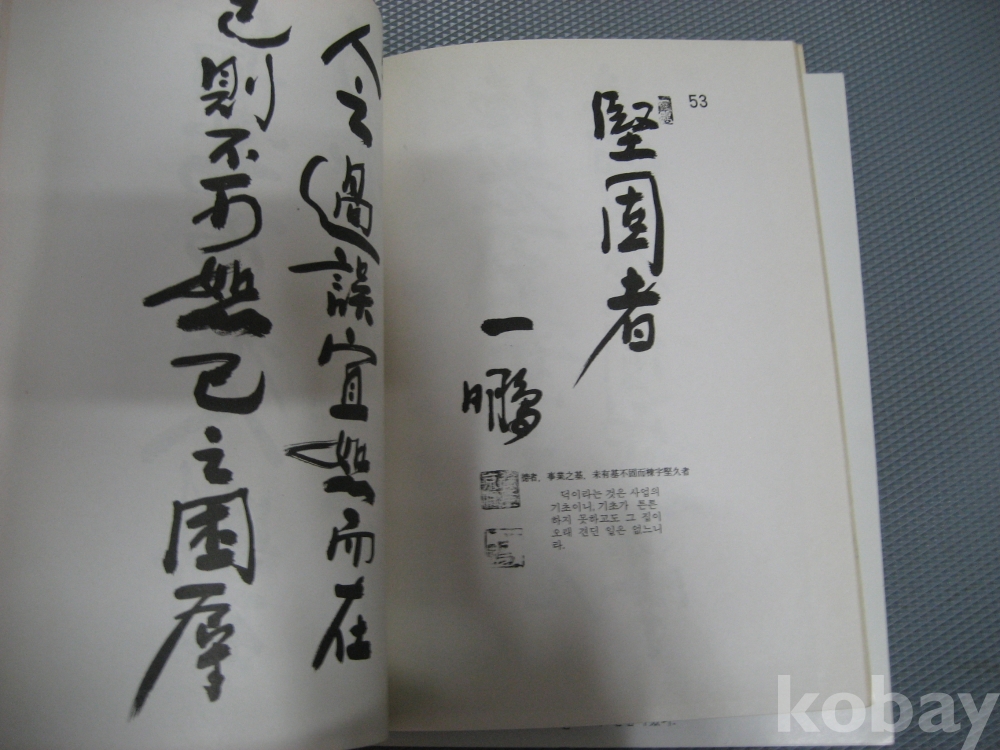 人之過誤宜恕而在
己則不可恕己之困辱
53
堅固者
一鵬
德者, 事業之基, 未有基不固而棟宇堅久者
덕이라는 것은 사업의
기초이니, 기초가 튼튼
하지 못하고도 그 집이
오래 견딘 일은 없느니
라.
kobay